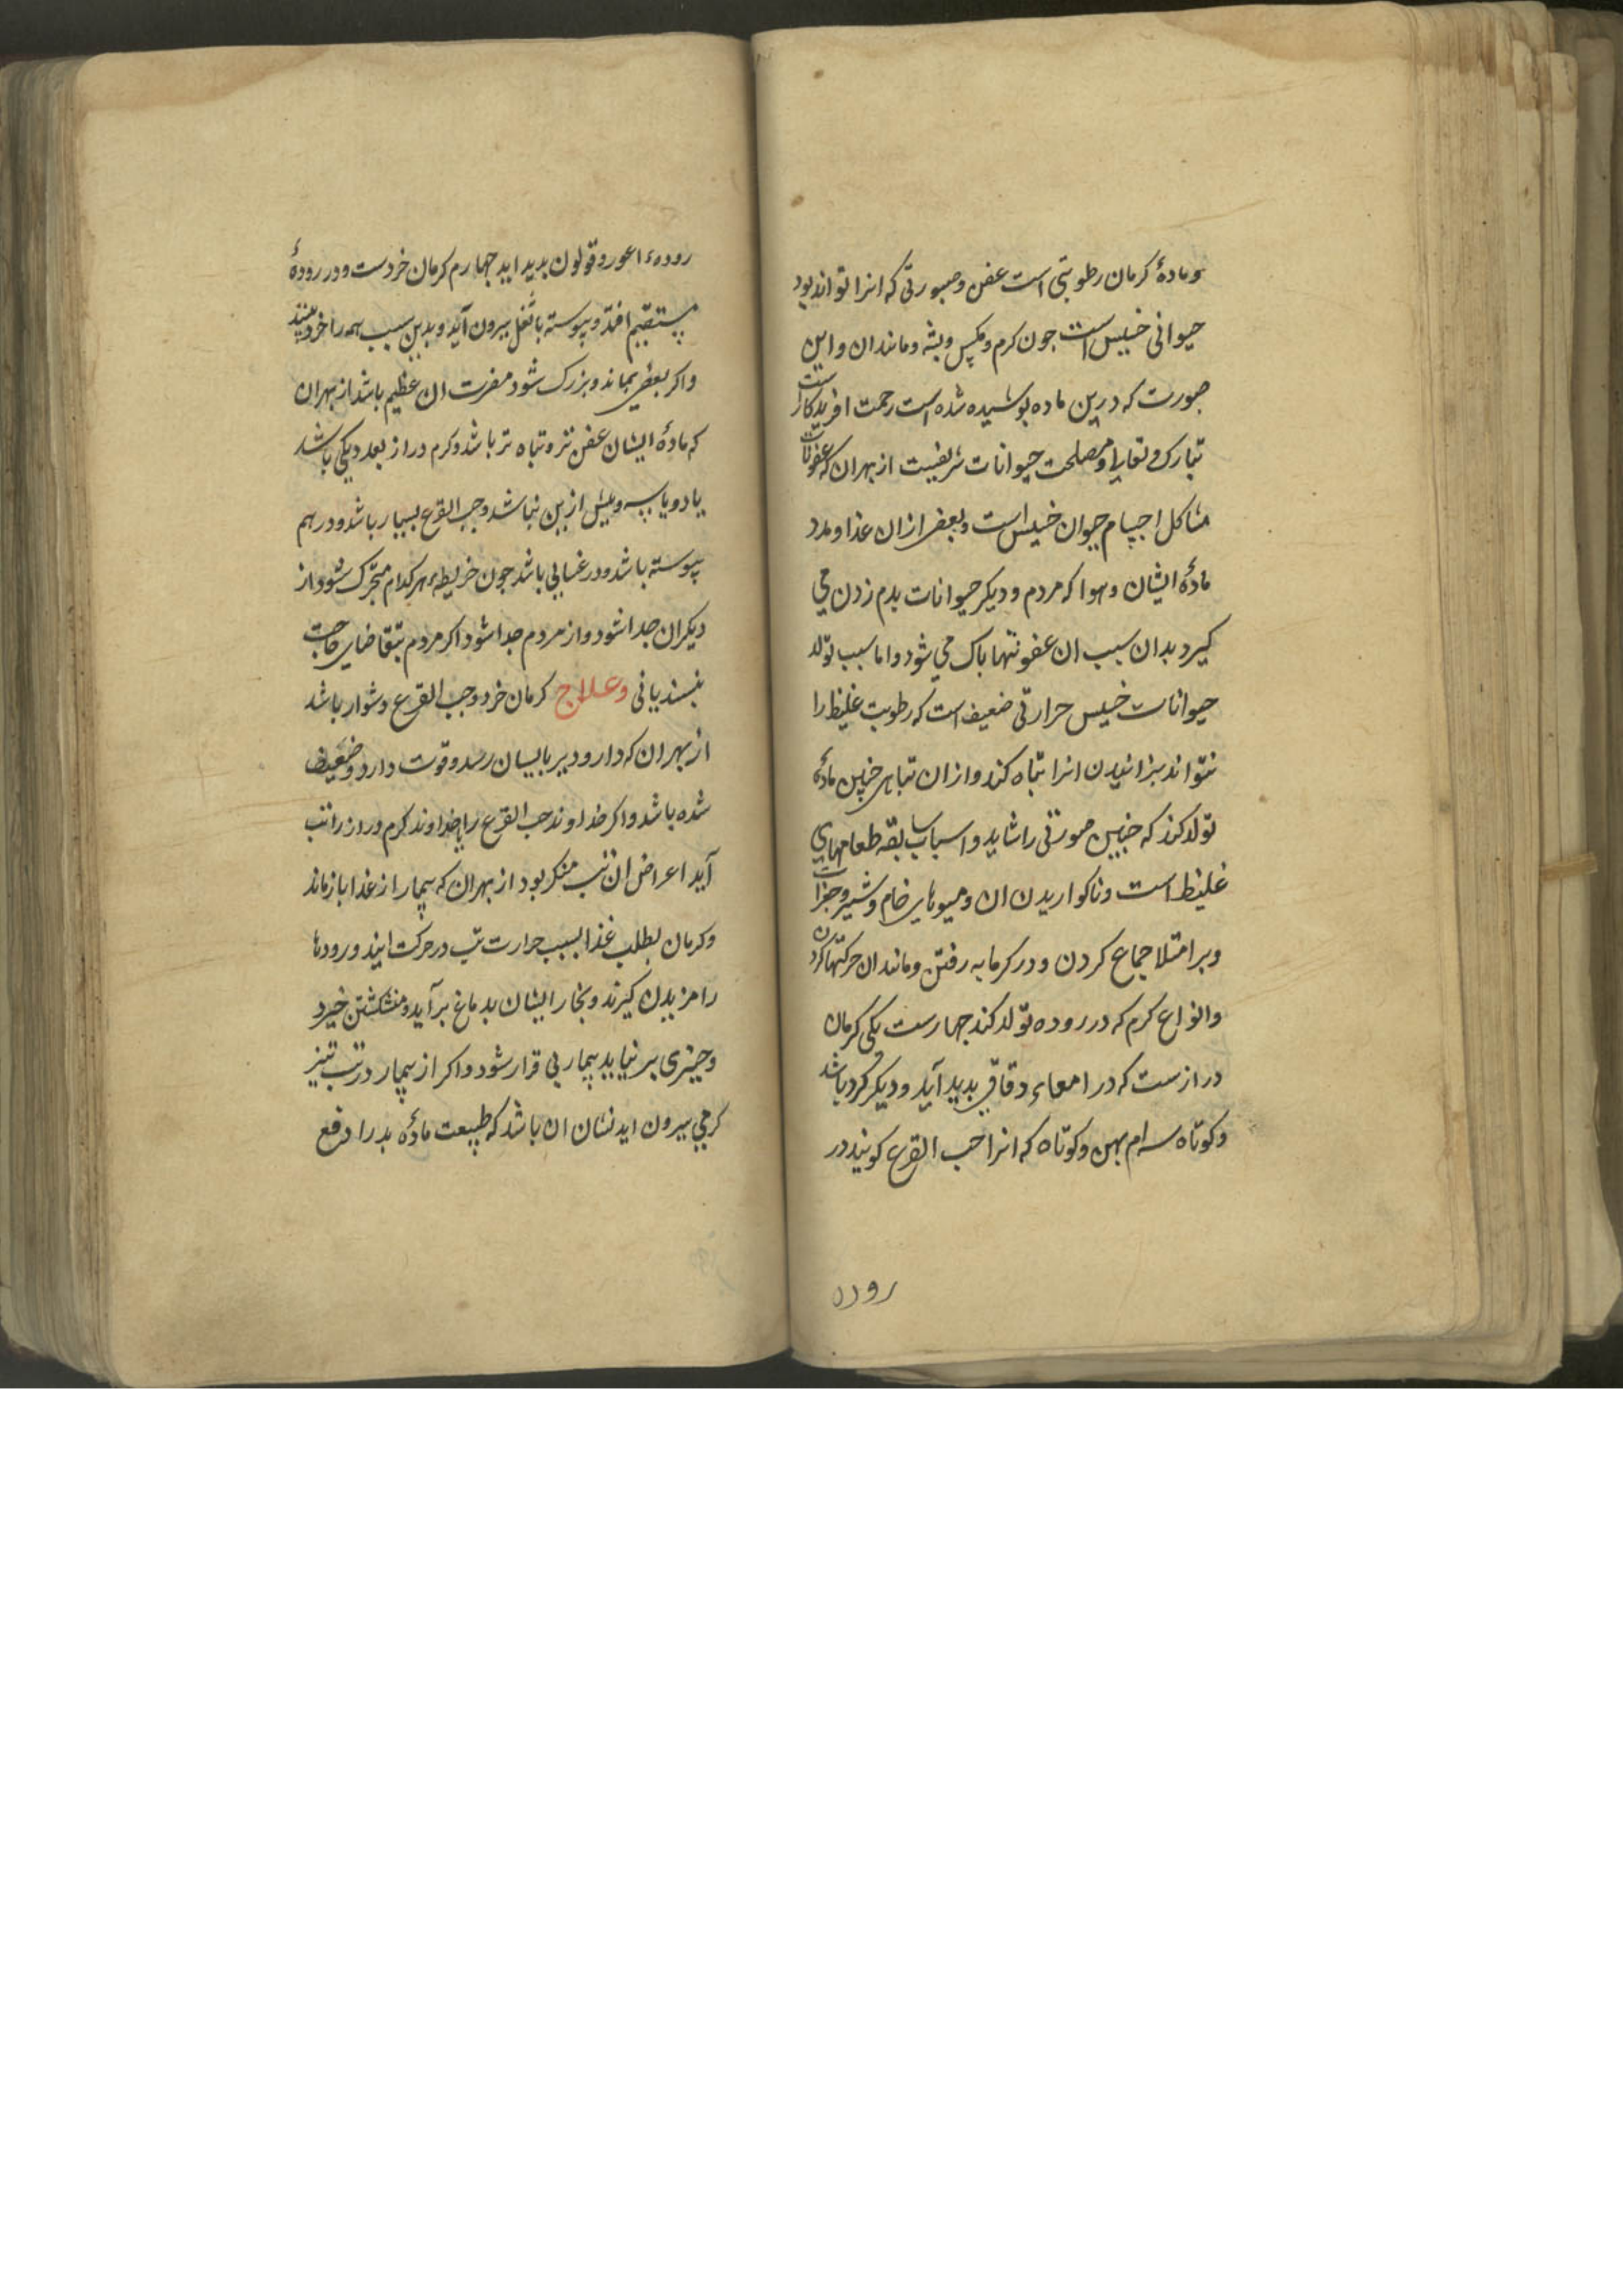 وماده‌ٔ کرمان رطوبتی است عفن وصورتی که انرا تواند بود
حیوانی خسیس است جون کرم ومکس وبشه ومانندان واین
صورت که درین ماده بوشیده شده است رحمت افریدکار است
تبارک وتعالی ومصلحت حیوانات شریفست از بهران که عفونات
مشاکل اجسام حیوان خسیس است وبعضی ازان غذا ومدد
مادهٔ ایشان وهوا که مردم ودیکر حیوانات بدم زدن می
کیرد بدان سبب ان عفونتها باک می شود واما سبب تولد
حیوانات خسیس حرارتی ضعیف است که رطوبت غلیظ را
نتواند بزانیدن انرا تباه کند وازان تباهی جنین مادهٔ
تولد کند که جنین صورتی را شاید واسباب سابقه طعامهای
غلیظ است وناکواریدن ان ومیوهای خام وشیر وجغرات
وبر امتلا جماع کردن ودر کرمابه رفتن ومانندان حرکتها کردن
وانواع کرم که در روده تولد کند جهارست یکی کرمان
درازست که در امعاء دقاق بدید آید ودیکر کرد باشد
وکوتاه سه‌ام بهن وکوتاه که انرا حب القرع کویند در
روده
رودهٔ اعور وقولون بدید اید جهارم کرمان خردست ودر رودهٔ
مستقیم افتد وپیوسته با ثفل بیرون آید وبدین سبب همه را خرد بینند
واکر بعضی بماند وبزرک شود مضرت ان عظیم باشد از بهران
که مادهٔ ایشان عفن تر وتباه تر باشد وکرم دراز بعد یکی باشد
یا دو یا سه وبیش ازین نباشد وحب القرع بسیار باشد ودر هم
پیوسته باشد ودر غشایی باشد جون خریطه هرکدام متحرک شود از
دیکران جدا شود واز مردم جدا شود اکر مردم بتقاضای حاجت
بنسیند یا نی وعلاج کرمان خرد وحب القرع دشوار باشد
از بهران که دارو دیر بایسان رسد وقوت دارو ضعیف
شده باشد واکر خداوند حب القرع را یا خداوند کرم دراز را تب
آید اعراض ان تب منکر بود از بهران که بیمار از غذا باز ماند
وکرمان بطلب غذا بسبب حرارت تب در حرکت ایند ورودها
را مزیدن کیرند وبخار ایشان بدماغ برآید ومنشکشتن خیزد
وجیزی بر نیاید بیمار بی قرار شود واکر از بیمار در تب تیز
کرمی بیرون اید نشان ان باشد که طبیعت مادهٔ بد را دفع